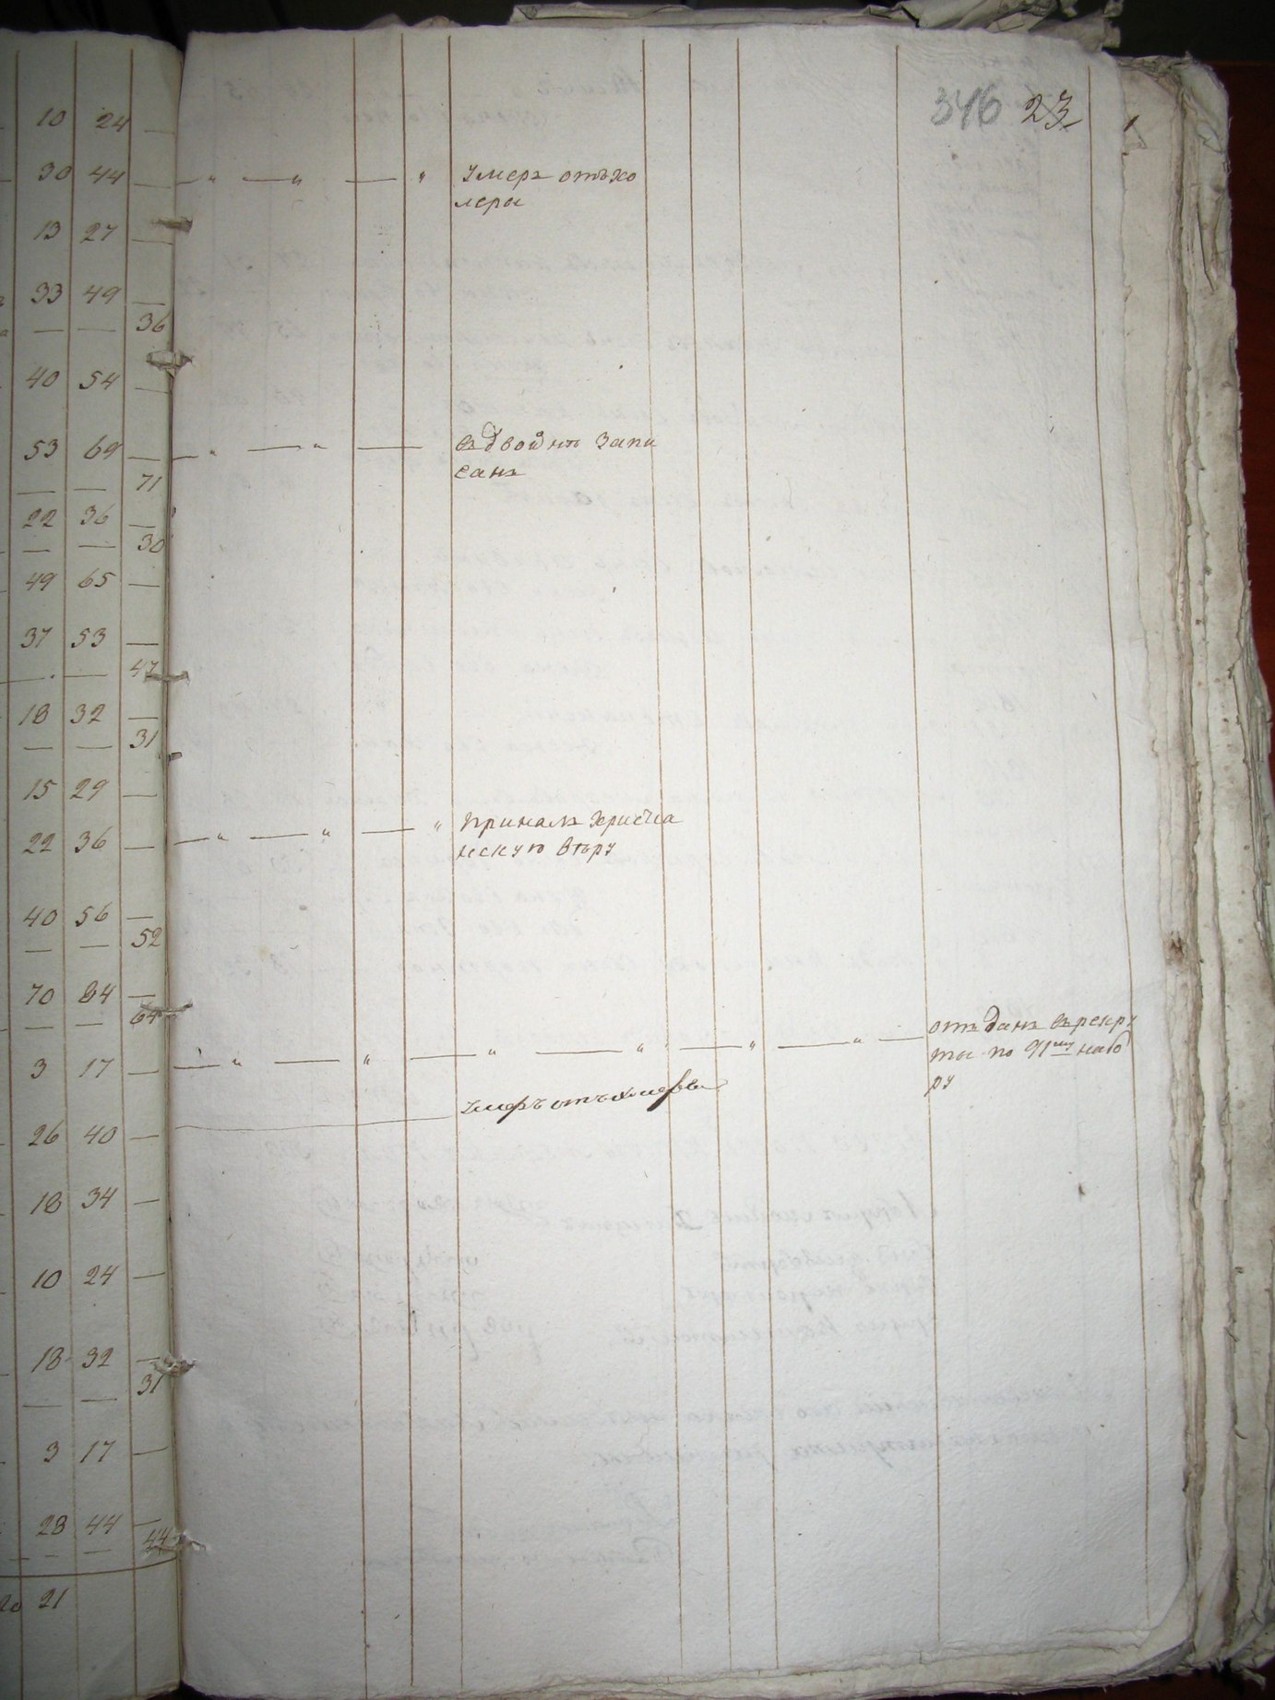 346 23
10 24 —
30 44 — — " — " — " умеръ отъ хо
леры
13 27 —
33 49 —
— — 36
40 54 —
53 69 — — " — " — въ двойнѣ запи
санъ
— — 71
22 36 —
— — 30
49 65 —
37 53 —
— — 47
18 32 —
— — 31
15 29 —
22 36 — — " — " — " принялъ христиа
нскую вѣру
40 56 —
— — 52
70 84 —
— — 64
3 17 — — " — " — " — " — " — " — отъданъ въ рекру
ты по 91му набо
ру
умеръ отъ холеры
26 40 —
18 34 —
10 24 —
18 32 —
— — 31
3 17 —
28 44 —
— — 44
20 21